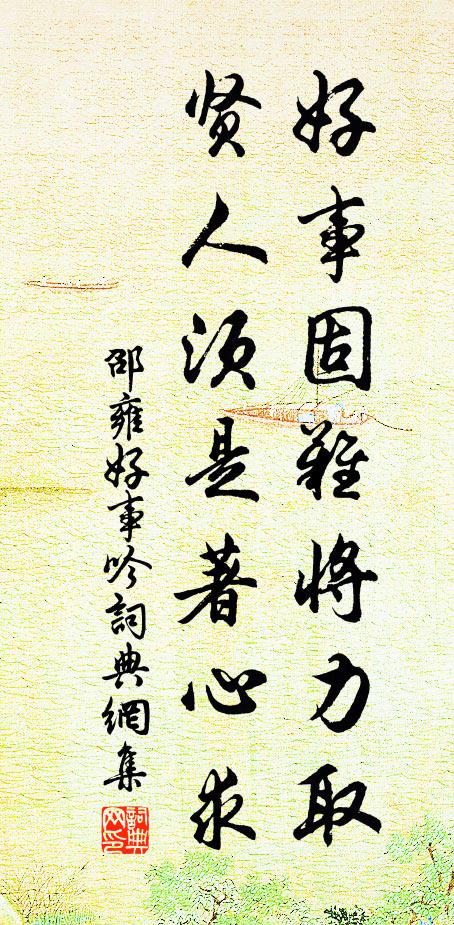 好事固難将力取
贤人须是著心求
邵雍好事吟詞典網集
詞典网印